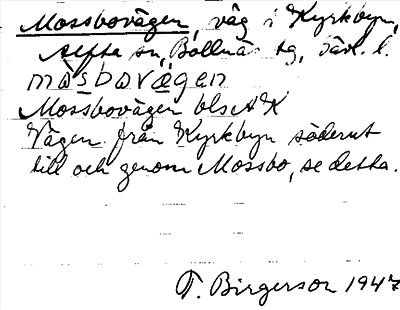 Mossbovägen, väg i Kyrkbyn,
Alfta sn, Bollnäs tg, Gävl. l.
måsbovägen
Mossbovägen bls AK
Vägen från Kyrkbyn söderut
till och genom Mossbo, se detta.
T. Birgerson 1947